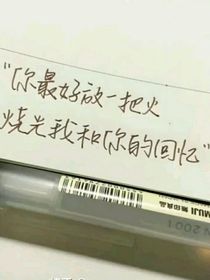 "你最好放一把火
烧光我和你的回忆"
MUJI 無印良品
N 2001